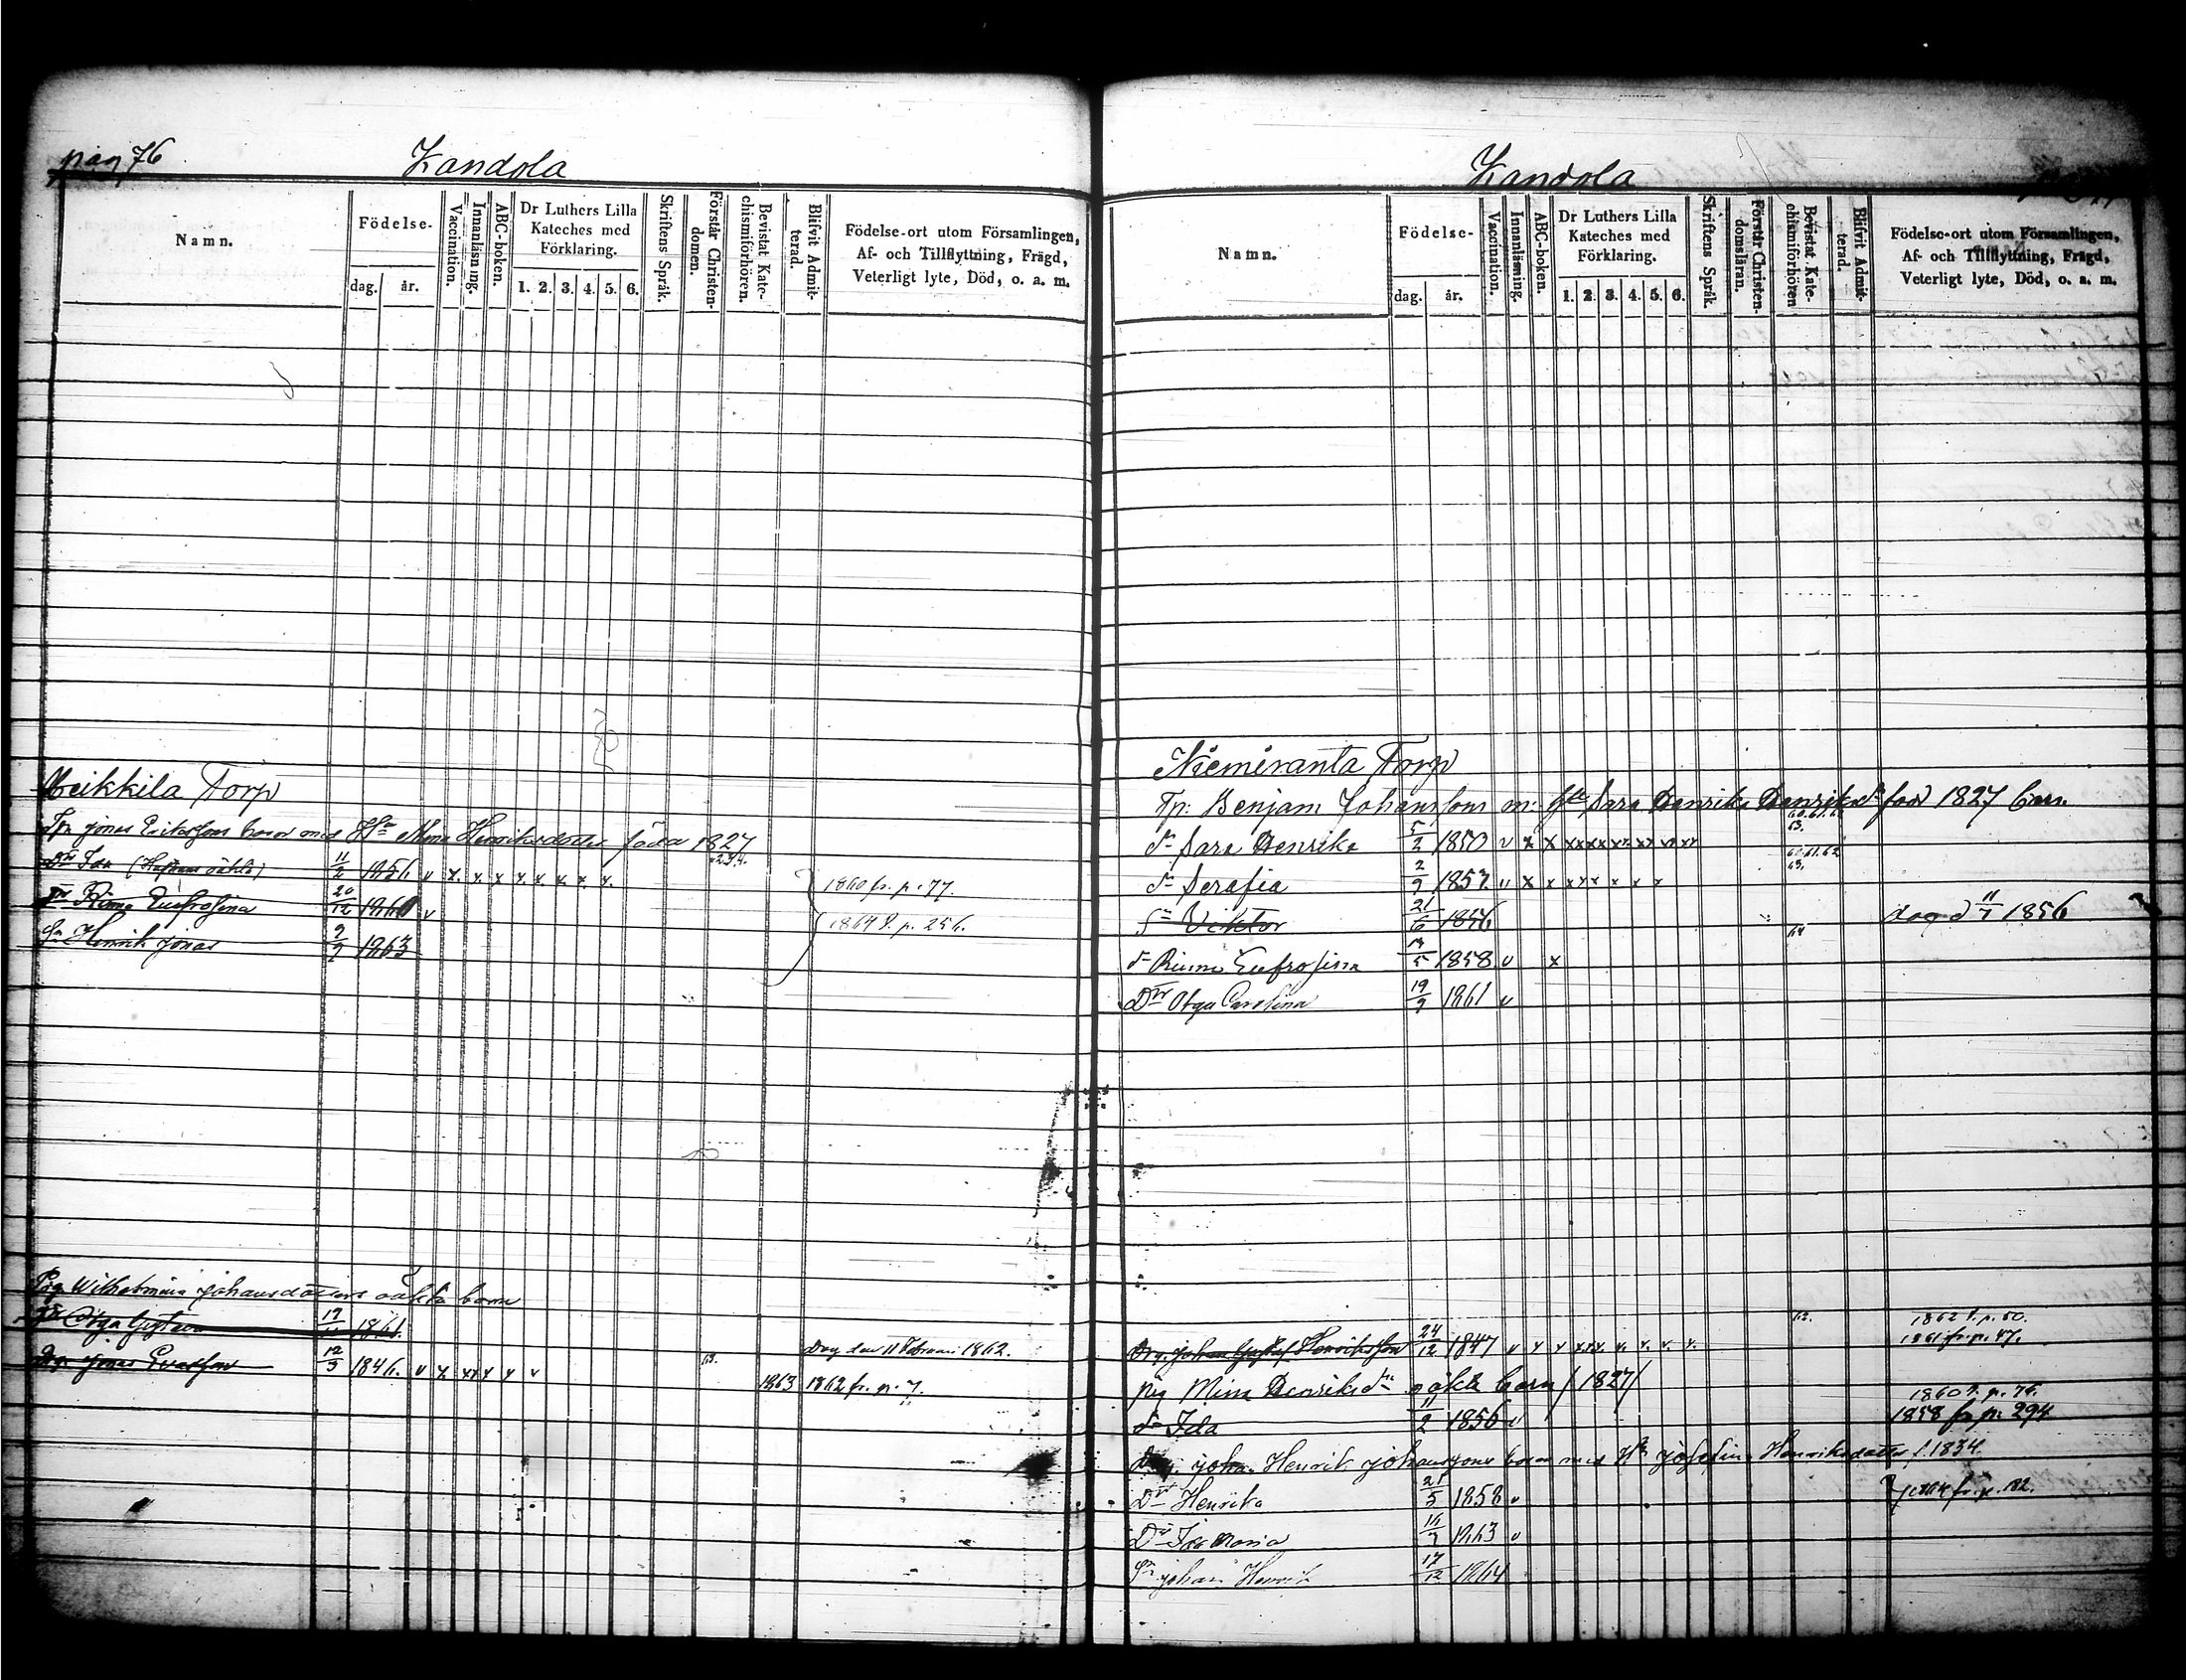 pag 76
Kandola
Namn.
Födelse-
dag. år.
Vaccination.
Innanläsning.
ABC-boken.
Dr Luthers Lilla
Kateches med
Förklaring.
1. 2. 3. 4. 5. 6.
Skriftens Språk.
Förstår Christen-
domen.
Bevistat Kate-
chismiförhören.
Blifvit Admit-
terad.
Födelse-ort utom Församlingen,
Af- och Tillflyttning, Frägd,
Veterligt lyte, Död, o. a. m.
Heikkila Torp
Tp. Jonas Erikssons barn med H Mina Henriksdotter född 1827
Dr Ida 11/2 1856 v x. x x x. x. x. x. x. 1860 fr. p. 77.
Dr Rima Eufrosina 20/12 1860 v 1864 t. p. 256.
Sn Henrik Jonas 9/9 1863
Pig. Wilhelmina Johansdotters oäkta barn
Dr Olga Gustava 19/11 1861 Dog den 11 Februari 1862.
Dr. Jonas 12/3 1846. v x x x x x v 63. 1863 1862 fr. p. 7.
Kandola
Namn.
Födelse-
dag. år.
Vaccination.
Innanläsning.
ABC-boken.
Dr Luthers Lilla
Kateches med
Förklaring.
1. 2. 3. 4. 5. 6.
Skriftens Språk.
Förstår Christen-
domsläran.
Bevistat Kate-
chismiförhören
Blifvit Admit-
terad.
Födelse-ort utom Församlingen,
Af- och Tillflyttning, Frägd,
Veterligt lyte, Död, o. a. m.
Niemiranta Torp
Tp: Benjam Johanssons m: Sara Henrika Henriksdr född 1827 barn.
d Sara Henrika 5/2 1850 v x x x x x x x x x x x 60.61.62 63.
d Serafia 2/9 1857. v x x x x x x x x 60.61.62 63.
Sn Viktor 21/6 1856 dog d 11/7 1856
d Rima Eufrosina 5 1858 v x 64
Dr Olga Carolina 19/9 1861 v
Drg. Johan Gustaf Henriksson 24/12 1847 v x x x x x x. x. x. x. 62. 1862 t. p. 50.
1861 fr. p. 47.
Pig Mina Henriksdr oäkta barn /1827/
d Ida 11/2 1856 v 1860 t. p. 76.
1858 fr p: 294
Johan Henrik Johanssons barn med H Josefina Henriksdotter f. 1834.
Dr Henrika 5 1858 v fr. p. 182.
Dr Ida Maria 16/9 1863 v
Sn Johan Henrik 17/12 1864